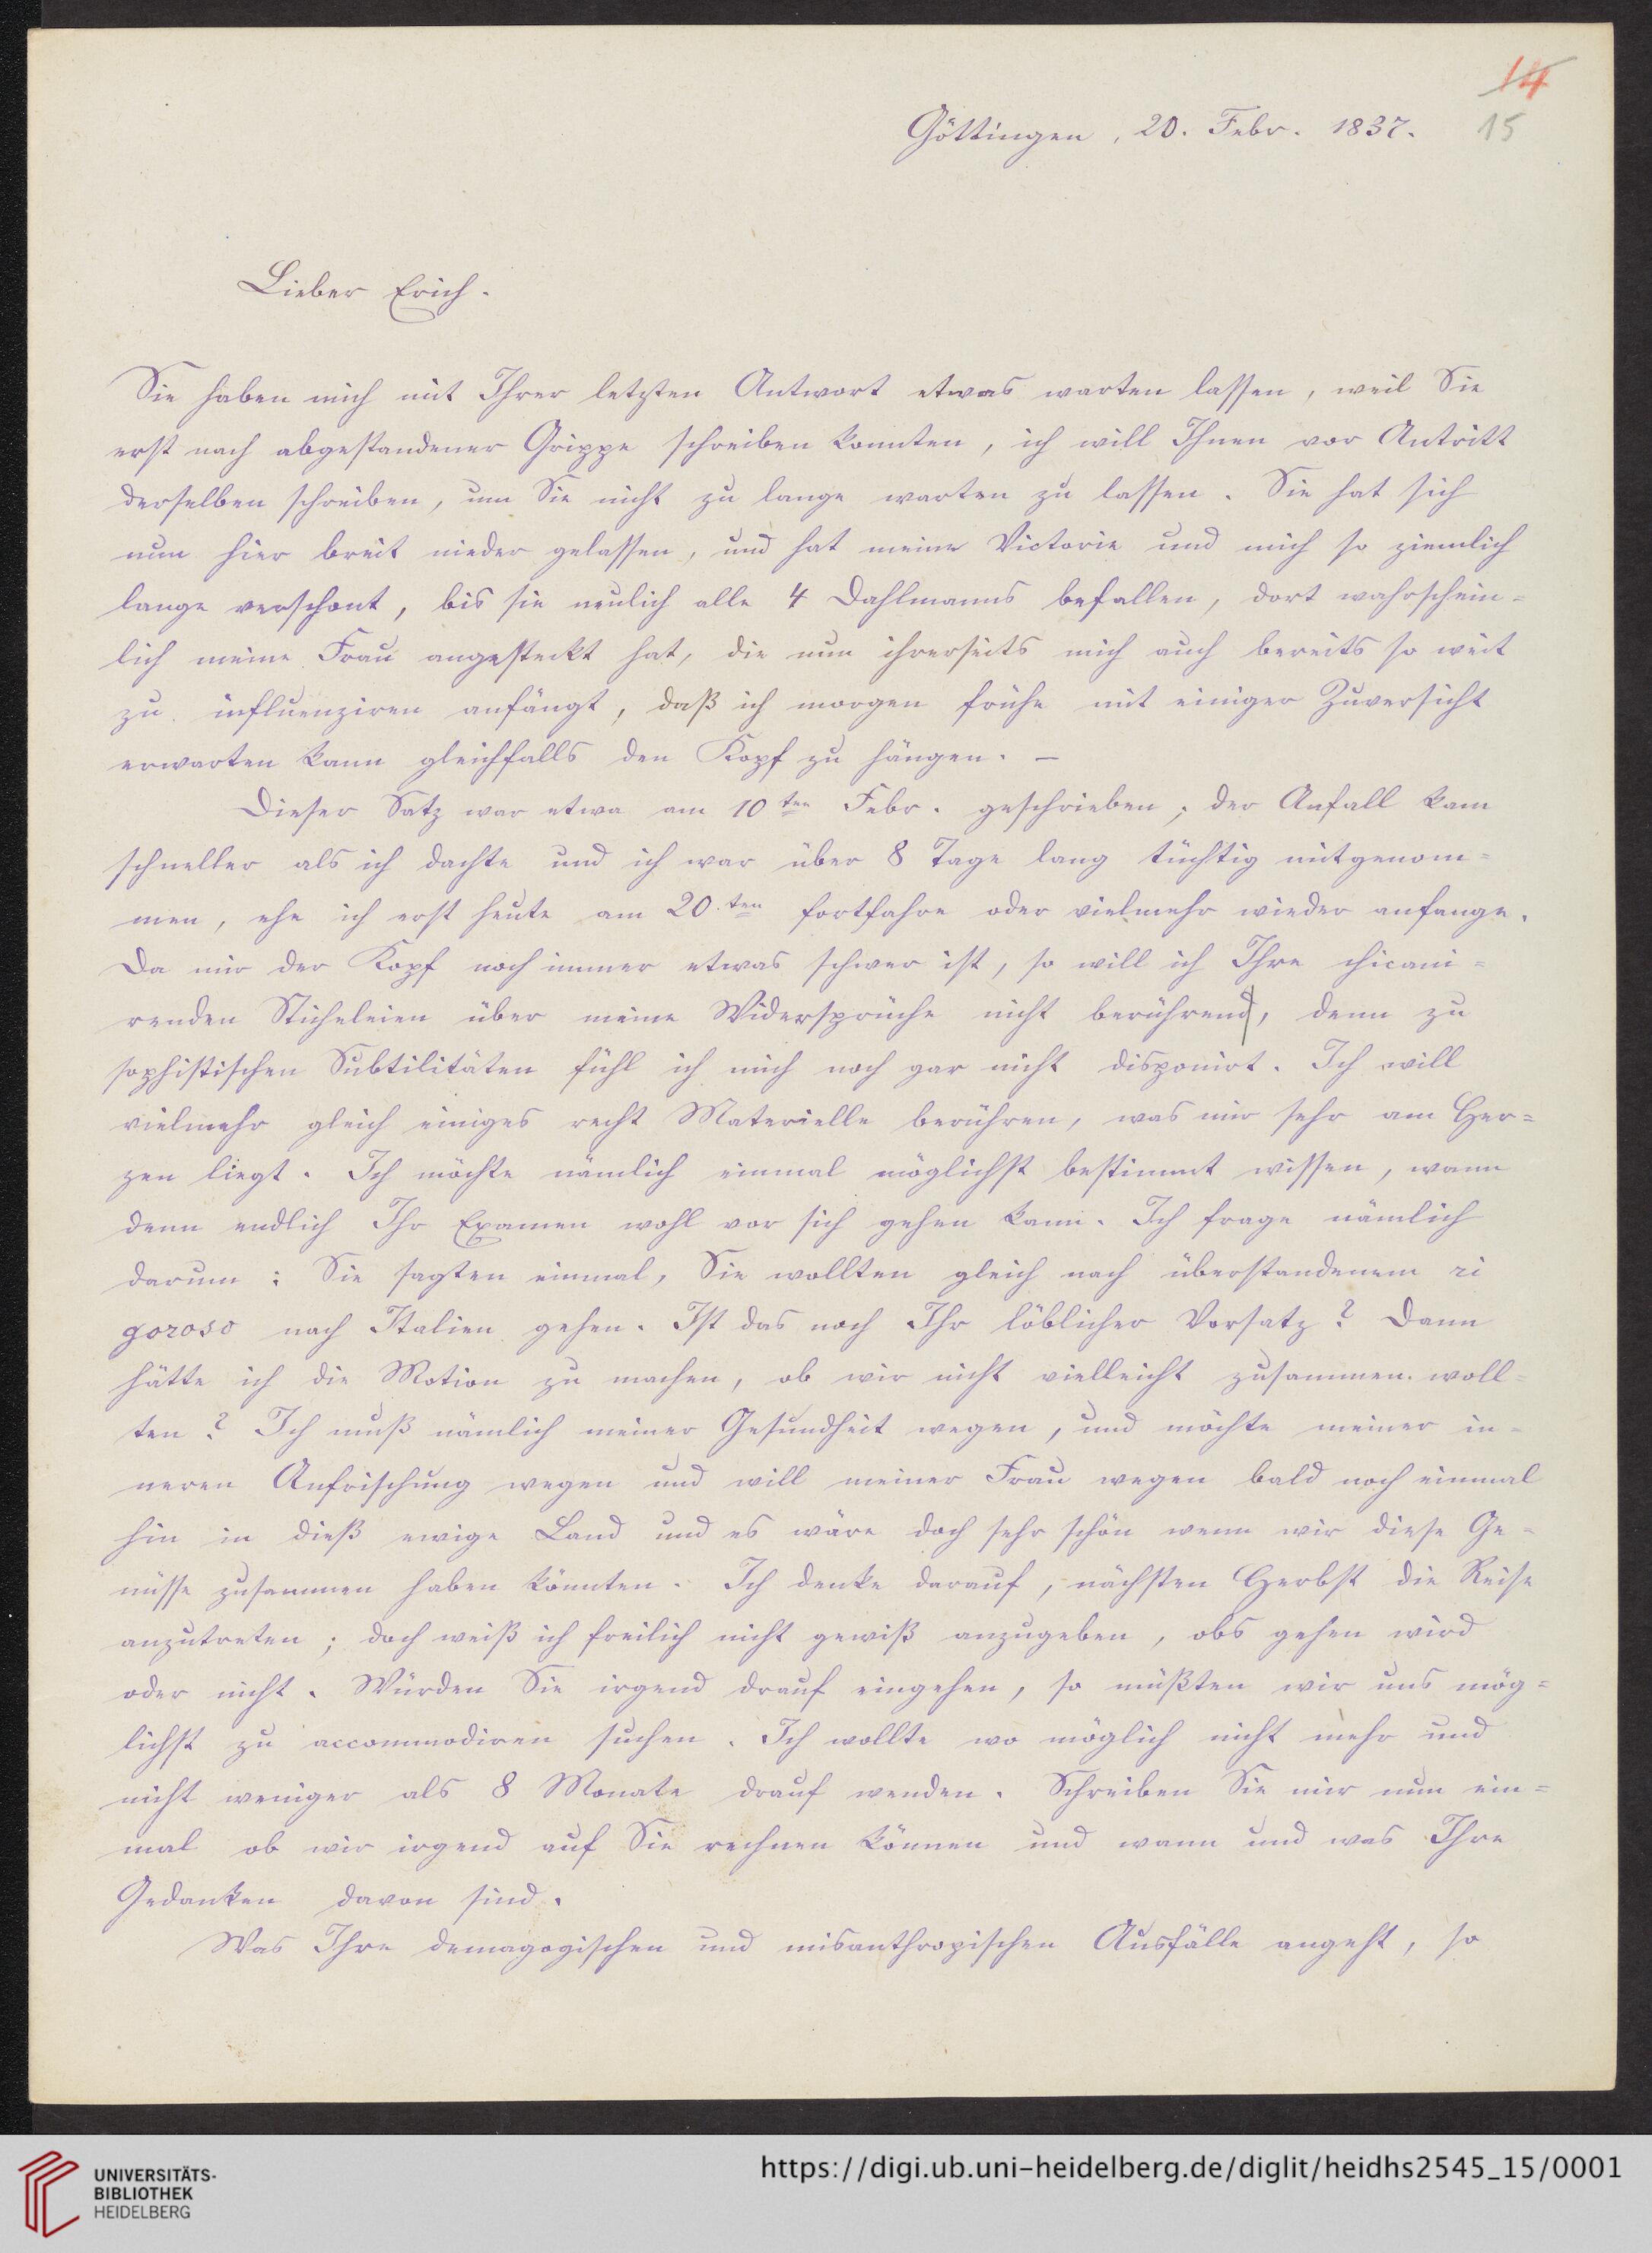 14
Göttingen, 20. Febr. 1837. 15
Lieber Erich.
Sie haben mich mit Ihrer letzten Antwort etwas warten lassen, weil Sie
erst nach abgestandener Grippe schreiben konnten, ich will Ihnen vor Antritt
derselben schreiben, um Sie nicht zu lange warten zu lassen. Sie hat sich
nun hier breit nieder gelassen, und hat meine Victorie und mich so ziemlich
lange verschont, bis sie neulich alle 4 Dahlmanns befallen, dort wahrschein=
lich meine Frau angesteckt hat, die nun ihrerseits mich auch bereits so weit
zu influenziren anfängt, daß ich morgen frühe mit einiger Zuversicht
erwarten kann gleichfalls den Kopf zu hängen. —
Dieser Satz war etwa am 10ten Febr. geschrieben; der Anfall kam
schneller als ich dachte und ich war über 8 Tage lang tüchtig mitgenom=
men, ehe ich erst heute am 20.ten fortfahre oder vielmehr wieder anfange.
Da mir der Kopf noch immer etwas schwer ist, so will ich Ihre chicani=
renden Sticheleien über meine Widersprüche nicht berührend, denn zu
sophistischen Subtilitäten fühl ich mich noch gar nicht disponirt. Ich will
vielmehr gleich einiges recht Materielle berühren, was mir sehr am Her=
zen liegt. Ich möchte nämlich einmal möglichst bestimmt wissen, wann
denn endlich Ihr Examen wohl vor sich gehen kann. Ich frage nämlich
darum: Sie sagten einmal, Sie wollten gleich nach überstandenem ri
goroso nach Italien gehen. Ist das noch Ihr löblicher Vorsatz? Dann
hätte ich die Motion zu machen, ob wir nicht vielleicht zusammen woll=
ten? Ich muß nämlich meiner Gesundheit wegen, und möchte meiner in=
neren Anfrischung wegen und will meiner Frau wegen bald noch einmal
hin in dieß ewige Land und es wäre doch sehr schön wenn wir diese Ge=
nüsse zusammen haben könnten. Ich denke darauf, nächsten Herbst die Reise
anzutreten; doch weiß ich freilich nicht gewiß anzugeben, obs gehen wird
oder nicht. Würden Sie irgend drauf eingehen, so müßten wir uns mög=
lichst zu accommodiren suchen. Ich wollte wo möglich nicht mehr und
nicht weniger als 8 Monate drauf wenden. Schreiben Sie mir nun ein=
mal ob wir irgend auf Sie rechnen können und wann und was Ihre
Gedanken davon sind.
Was Ihre demagogischen und misanthropischen Ausfälle angeht, so
UNIVERSITÄTS-
BIBLIOTHEK
HEIDELBERG
https://digi.ub.uni-heidelberg.de/diglit/heidhs2545_15/0001